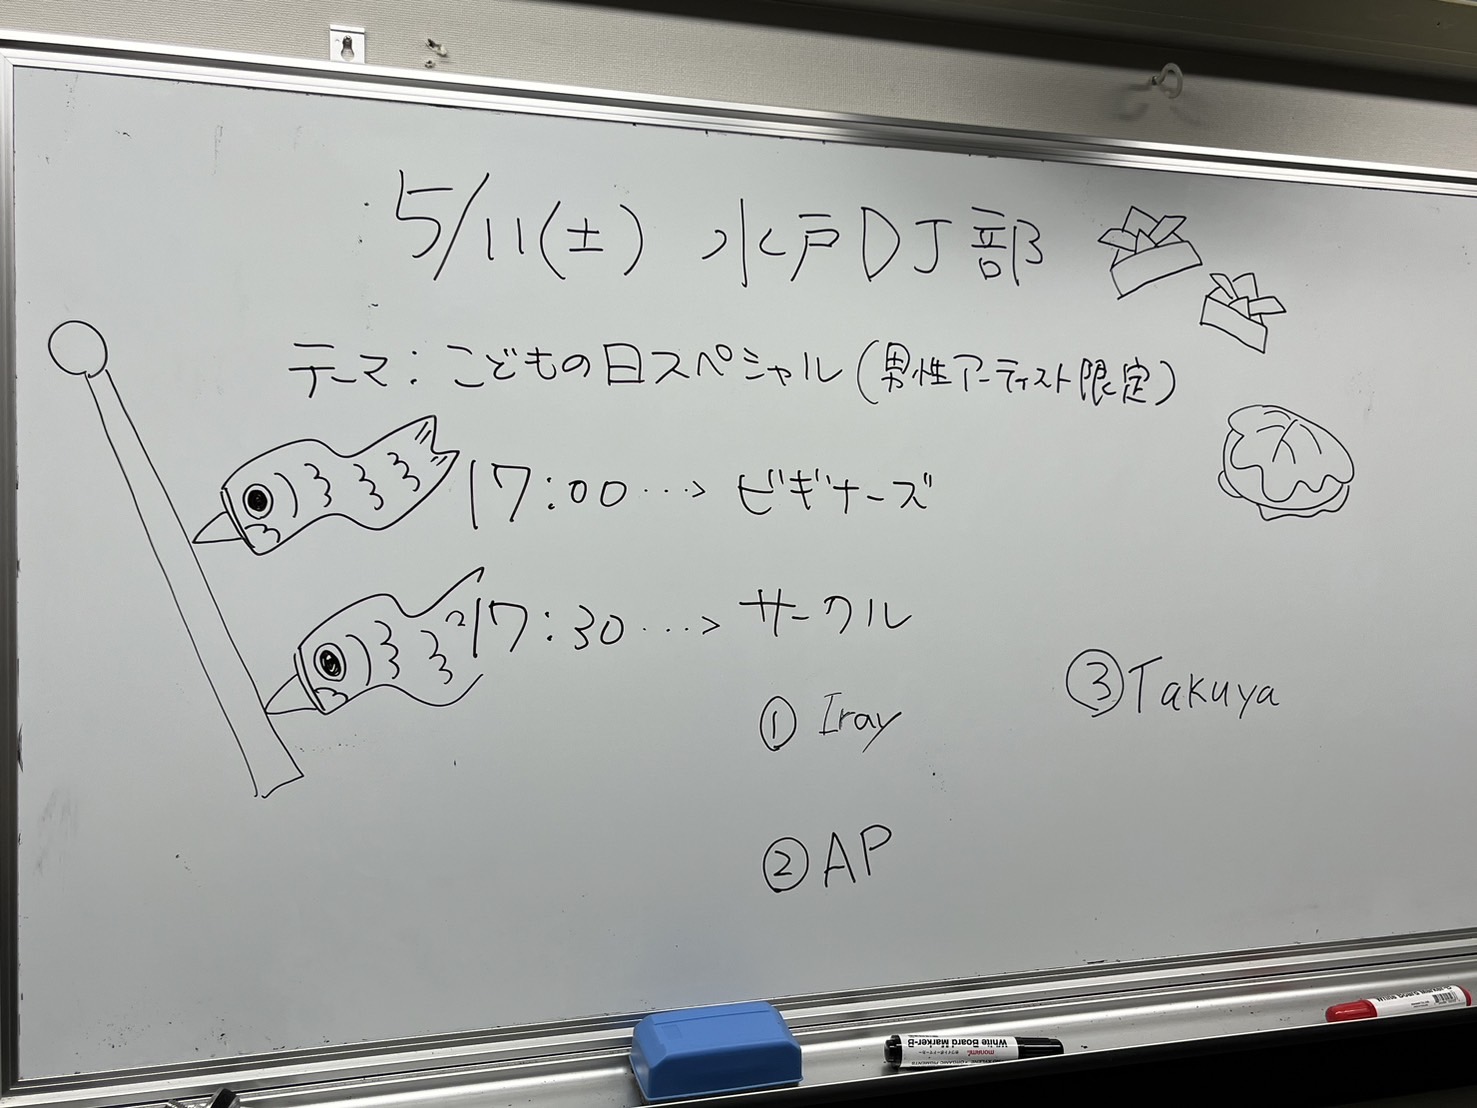 5/11(土) 水戸DJ部
テーマ:こどもの日スペシャル(男性アーティスト限定)
17:00…>ビギナーズ
17:30…>サークル
① Iray
③Takuya
②AP
White Board Marker-B
monami